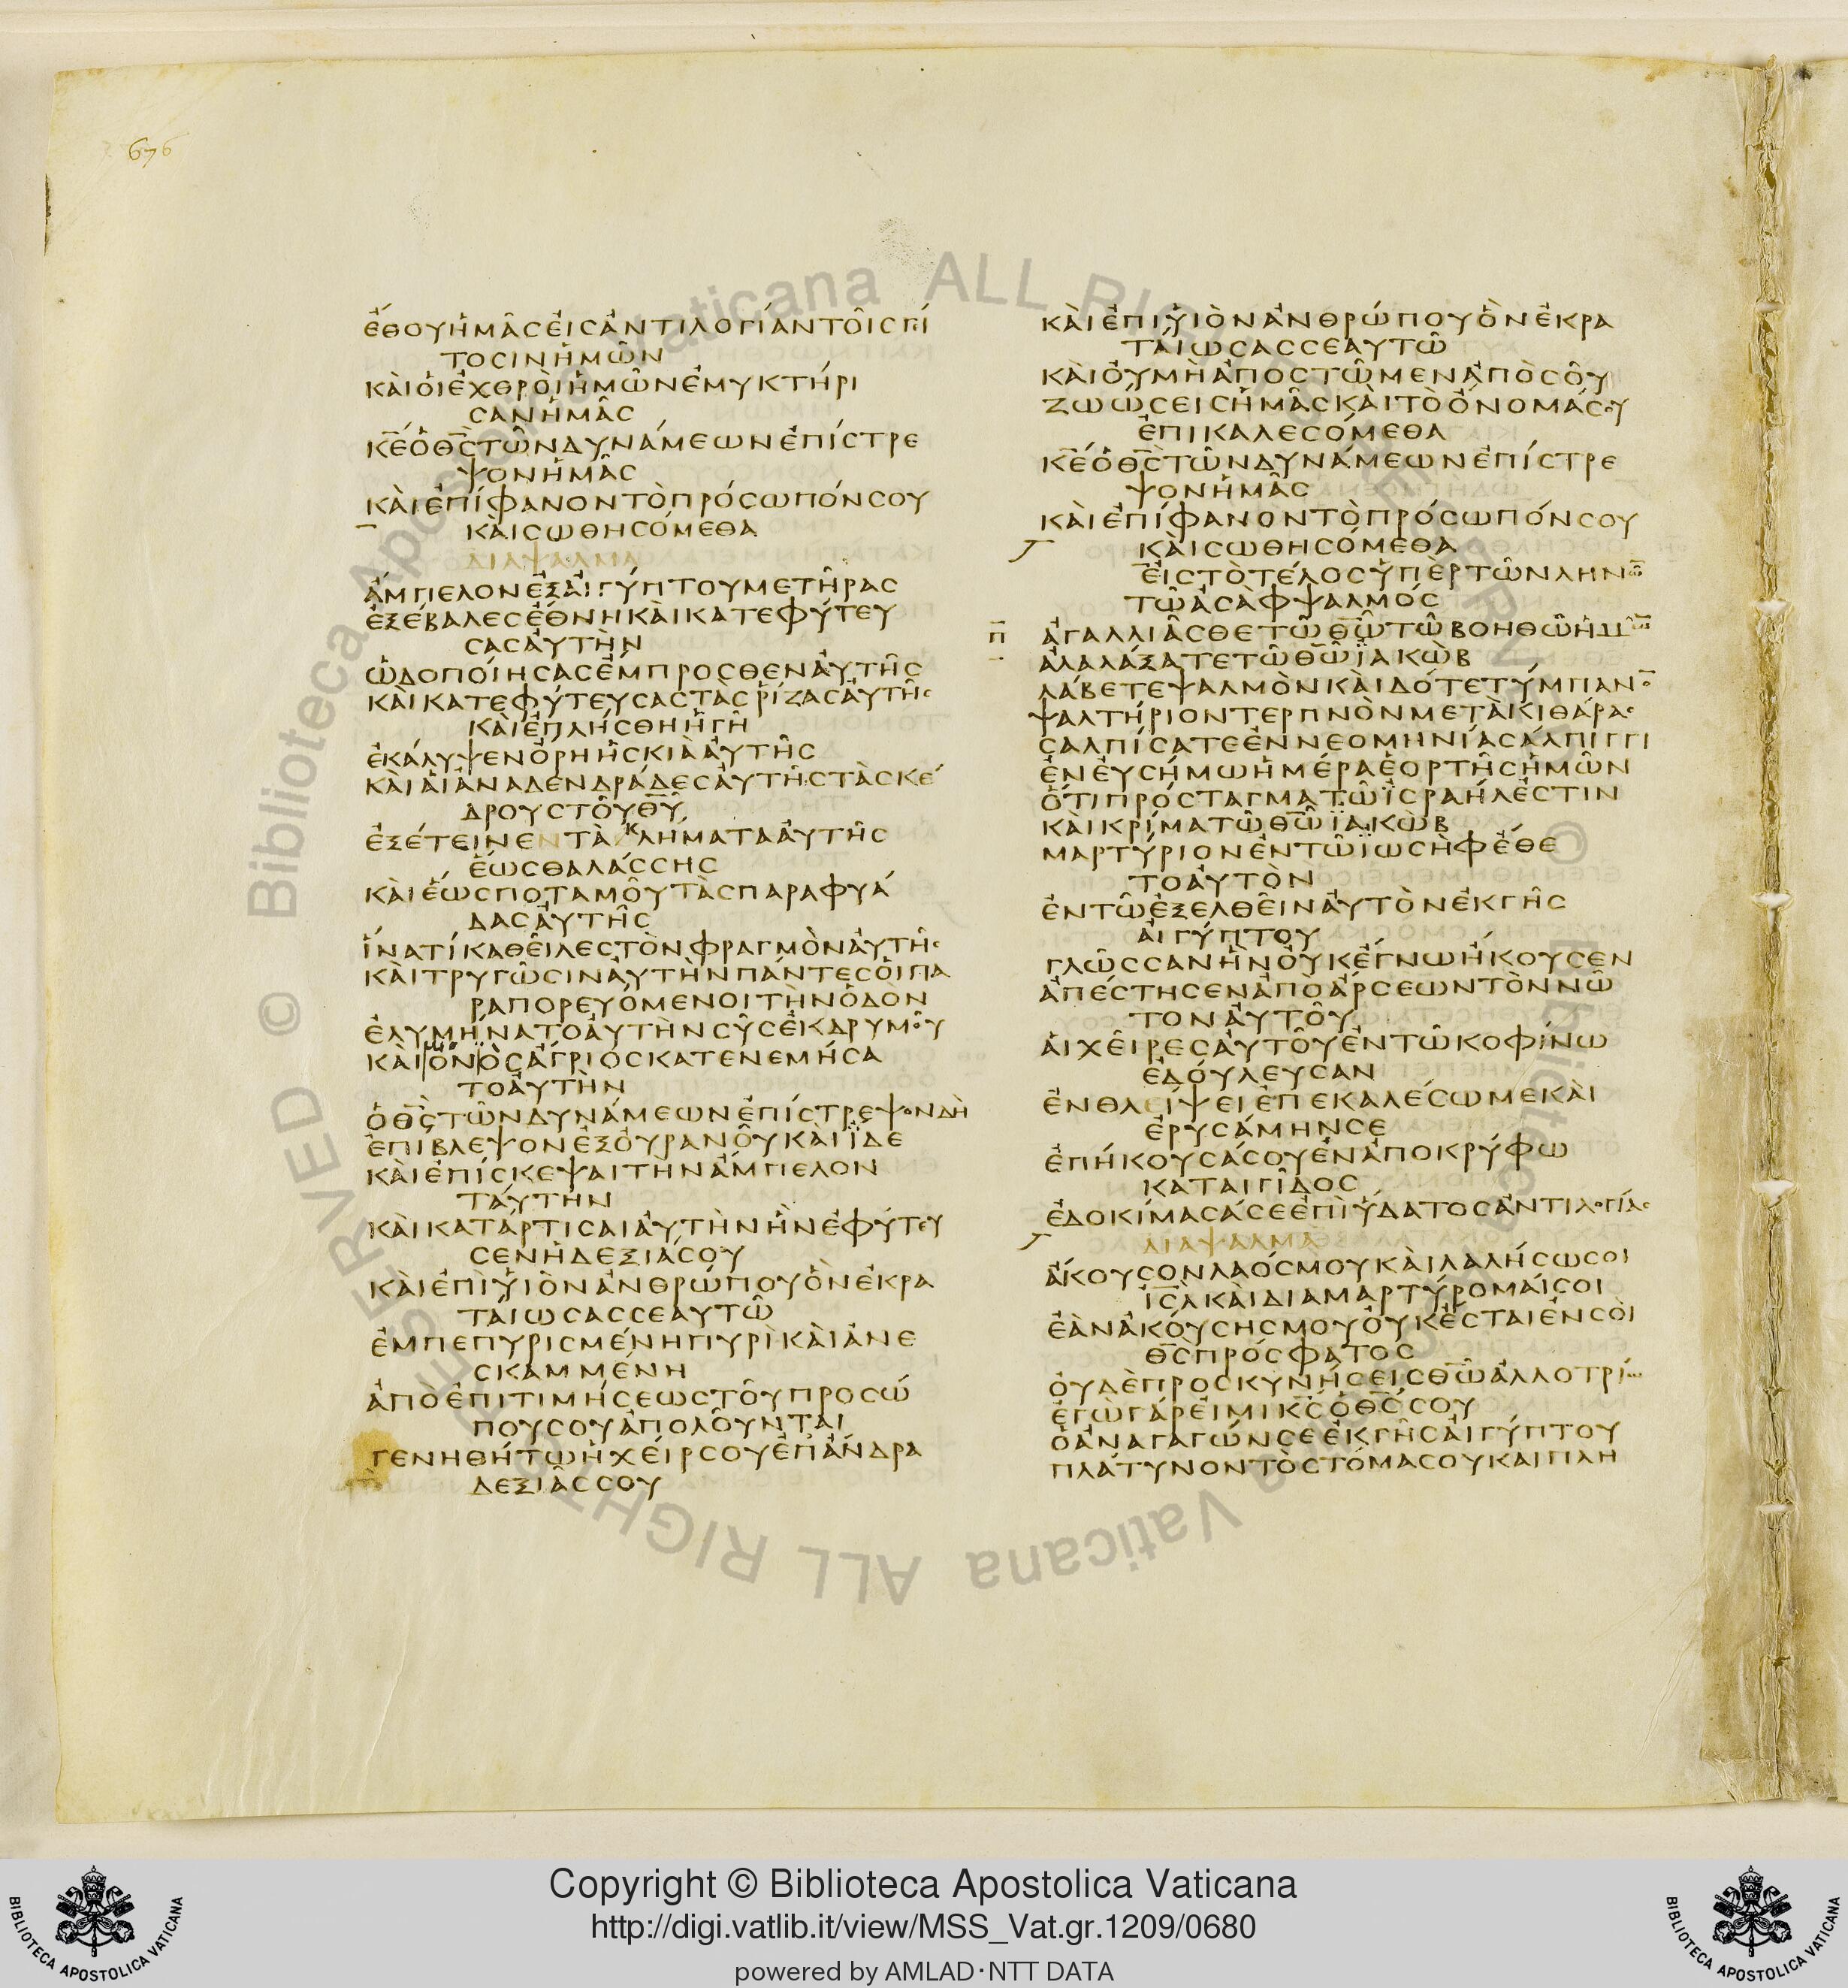 676
ἔθουἡμᾶςεἰςἀντιλογίαντοῖςγεί
τοσινἡμῶν
κὰιὁιἐχθρὸιἡμῶνἐμυκτήρι
σανἡμᾶς
κ̅ε̅ὁθ̅ς̅τῶνδυνάμεωνἐπίστρε
ψονἡμᾶς
κὰιἐπίφανοντὸπρόσωπόνσου
κὰισωθησόμεθα
διαψαλμα
ἄμπελονἐξἀιγύπτουμετῆρας
ἐξέβαλεςἔθνηκὰικατεφύτευ
σαςἀυτὴν
ὡδοποίησαςἔμπροσθενἀυτῆς
κὰικατεφύτευσαςτὰςῥίζαςἀυτῆς
κὰιἐπλήσθηἡγῆ
ἐκάλυψενὄρηἡσκιὰἀυτῆς
κὰιἁιἀναδενδράδεςἀυτῆςτὰςκέ
δρουςτοῦθ̅υ̅
ἐξέτεινεντὰκλήματαἀυτῆς
ἕωςθαλάσσης
κὰιἕωςποταμοῦτὰςπαραφυά
δαςἀυτῆς
ἵνατίκαθεῖλεςτὸνφραγμὸνἀυτῆς
κὰιτρυγῶσινἀυτὴνπάντεςὁιπα
ραπορευόμενοιτὴνὁδὸν
ἐλυμήνατοἀυτὴνσῦςἐκδρυμοῦ
κὰιὄνοςἄγριοςκατενεμήσα
τοἀυτὴν
ὁθ̅ς̅τῶνδυνάμεωνἐπίστρεψονδὴ
ἐπιβλεψονἐξὀυρανοῦκὰιἴδε
κὰιἐπίσκεψαιτηνἄμπελον
ταύτην
κὰικατάρτισαιἀυτὴνἣνἐφύτευ
σενἡδεξιάσου
κὰιἐπὶυἱὸνἀνθρώπουὃνἐκρα
ταίωσαςσεαυτῶ
ἐμπεπυρισμένηπυρὶκὰιἀνε
σκαμμένη
ἀποἐπιτιμήσεωςτοῦπροσώ
πουσουἀπολοῦνται
γενηθήτωἡχείρσουἐπἄνδρα
δεξιᾶςσου
κὰιἐπιυἱὸνἀνθρώπουὃνἐκρα
ταίωσαςσεαυτῶ
κὰιὀυμὴἀποστῶμενἀπὸσοῦ
ζωώσειςἡμᾶςκὰιτὸὄνομάσου
ἐπικαλεσόμεθα
κ̅ε̅ὁθ̅ς̅τῶνδυνάμεωνἐπίστρε
ψονἡμᾶς
κὰιἐπίφανοντὸπρόσωπόνσου
κὰισωθησόμεθα
ἐιςτὸτέλοςὑπὲρτῶνληνῶ̅
τῶἀσὰφψαλμός
π̅ ἀγαλλιᾶσθετῶθ̅ω̅τῶβοηθῶἡμῶ̅
ἀλαλάξατετῶθ̅ω̅ϊακὼβ
λάβετεψαλμὸνκὰιδότετύμπανο̅
ψαλτήριοντερπνὸνμετὰκιθάρας
σαλπίσατεἐννεομηνίασάλπιγγι
ἐνἐυσήμωἡμέραἑορτῆςἡμῶν
ὅτιπρόσταγματῶἰσραήλἐστιν
κὰικρίματῶθ̅ω̅ϊακὼβ
μαρτύριονἐντῶϊωσὴφἔθε
τοἀυτὸν
ἐντῶἐξελθεῖνἀυτὸνἐκγῆς
ἀιγύπτου
γλῶσσανἣνὀυκἔγνωἤκουσεν
ἀπέστησενἀπὸἄρσεωντὸννῶ
τονἀυτοῦ
ἁιχεῖρεςἀυτοῦἐντῶκοφίνω
ἐδούλευσαν
ἐνθλείψειἐπεκαλέσωμεκὰι
ἐρυσάμηνσε
ἐπήκουσάσουἐνἀποκρύφω
καταιγῖδος
ἐδοκίμασάσεἐπὶὕδατοςἀντιλογίας
διαψαλμα
ἄκουσονλαόςμουκὰιλαλήσωσοι
ι̅σ̅λ̅κὰιδιαμαρτύρομαίσοι
ἐὰνἀκούσηςμουὀυκἔσταιἐνσὸι
θ̅ς̅πρόσφατος
ὀυδὲπροσκυνήσειςθ̅ω̅ἀλλοτρίω
ἐγὼγάρἐιμικ̅ς̅ὁθ̅ς̅σου
ὁἀναγαγώνσεἐκγῆςἀιγύπτου
πλάτυνοντὸστόμασουκαιπλη
Copyright © Biblioteca Apostolica Vaticana
http://digi.vatlib.it/view/MSS_Vat.gr.1209/0680
powered by AMLAD·NTT DATA
BIBLIOTECA APOSTOLICA VATICANA
BIBLIOTECA APOSTOLICA VATICANA
© Biblioteca Apostolica Vaticana ALL RIGHTS RESERVED © Biblioteca Apostolica Vaticana ALL RIGHTS RESERVED